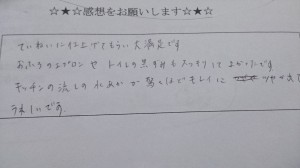 ☆★☆感想をお願いします☆★☆
ていねいに仕上げてもらい大満足です
おふろのエプロンや トイレの黒ずみもスッキリして よかったです
キッチンの流しの水あかが 驚くほどキレイに つやが出て
うれしいです。